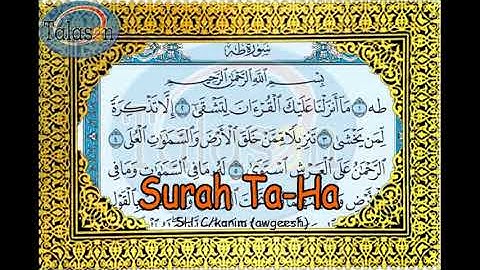 Talason
سُورَةُ طه
بِسْمِ اللَّهِ الرَّحْمَٰنِ الرَّحِيمِ
طه ١ مَا أَنزَلْنَا عَلَيْكَ الْقُرْءَانَ لِتَشْقَىٰ ٢ إِلَّا تَذْكِرَةً
لِّمَن يَخْشَىٰ ٣ تَنزِيلًا مِّمَّنْ خَلَقَ الْأَرْضَ وَالسَّمَٰوَٰتِ الْعُلَى ٤
الرَّحْمَٰنُ عَلَى الْعَرْشِ اسْتَوَىٰ ٥ لَهُ مَا فِي السَّمَٰوَٰتِ وَمَا فِي
Surah Ta-Ha
Sh: C/karim (awgeesh)